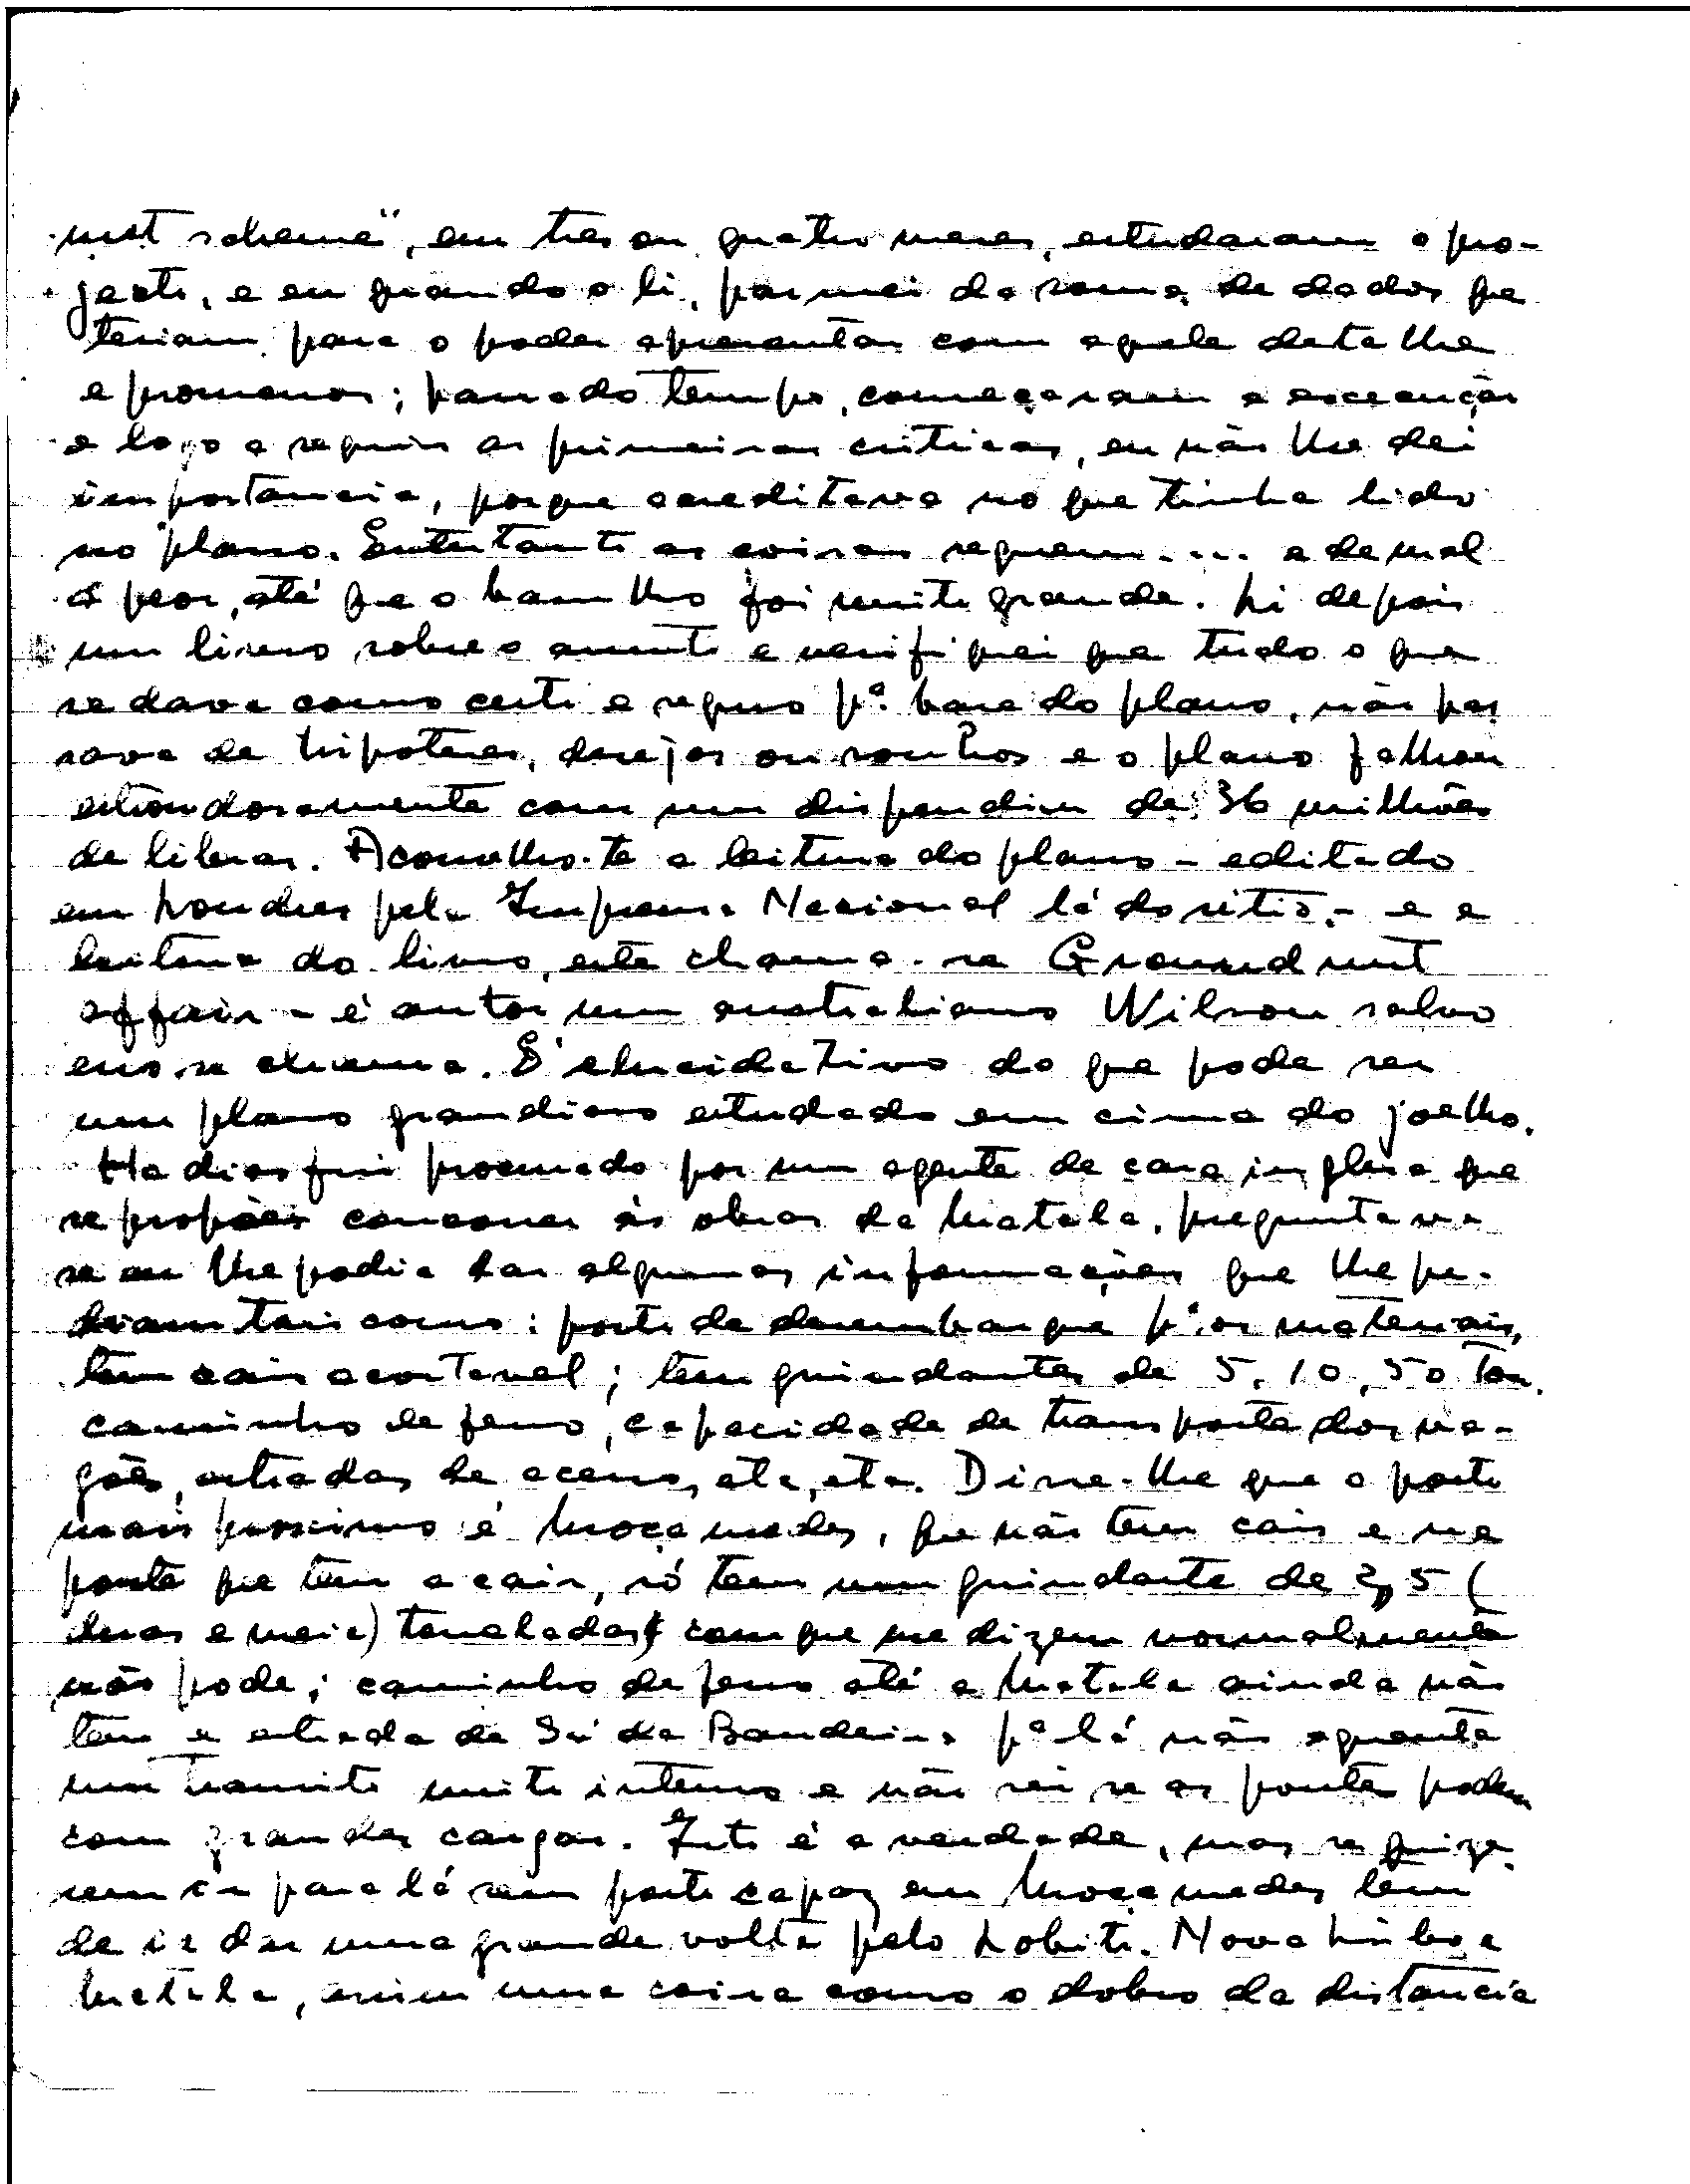 nut scheme", em tres ou quatro meses, estudaram o pro-
jecto, e eu quando o li, pasmei da soma de dados que
teriam para o poder apresentar com aquele detalhe
e promenor; passado tempo, começaram a execução
e logo a seguir as primeiras criticas, eu não lhe dei
importancia, porque acreditava no que tinha lido
no plano. Entretanto as coisas seguem.... e de mal
a peor, até que o barulho foi muito grande. Li depois
um livro sobre o assunto e verifiquei que tudo o que
se dava como certo e seguro pª. base do plano, não pas
sava de hipoteses, desejos ou sonhos e o plano falhou
estrondosamente com um dispendio de 36 milhões
de libras. Aconselho-te a leitura do plano - editado
em Londres pela Imprensa Nacional lá do sitio - e a
leitura do livro, este chama-se Groundnut
affair - é autor um australiano Wilson salvo
erro se chama. É elucidativo do que pode ser
um plano grandioso estudado em cima do joelho.
Ha dias fui procurado por um agente de casa inglesa que
se propões concorrer ás obras da Matala, preguntava
se eu lhe podia dar algumas informações que lhe pe-
diam tais como: porto de desembarque pª. os materiais,
tem cais acostavel; tem guindastes de 5, 10, 50 Ton.
caminho de ferro, capacidade de transporte dos va-
gões, estradas de acesso, etc, etc. Disse-lhe que o porto
mais proximo é Moçamedes, que não tem cais e na
ponte que tem a cair, só tem um guindaste de 2,5 (
duas e meia) toneladas com que me dizem normalmente
não pode; caminho de ferro até a Matala ainda não
tem e estrada de Sá da Bandeira pª lá não aguenta
um transito muito intenso e não sei se as pontes podem
com grandes cargas. Isto é a verdade, mas se quize-
rem ir para lá sem porto capaz em Moçamedes tem
de ir dar uma grande volta pelo Lobito. Nova Lisboa
Matala, assim uma coisa como o dobro da distancia